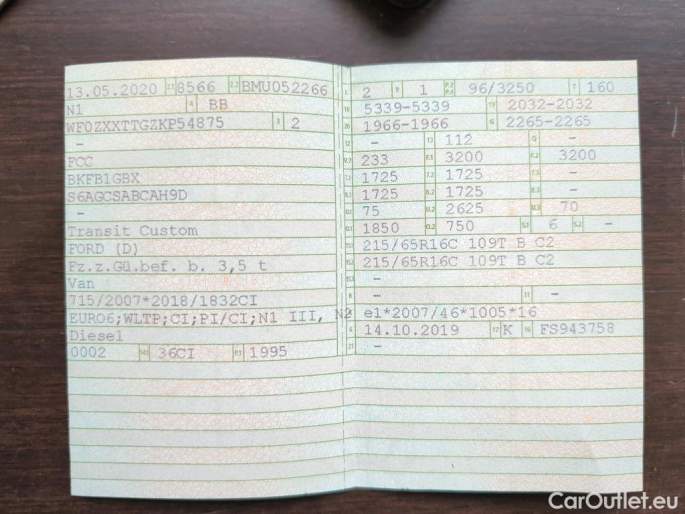 13.05.2020 8566 BMU052266
N1 BB
WF0ZXXTTGZKP54875 2
-
FCC
BKFB1GBX
S6AGCSABCAH9D
-
Transit Custom
FORD (D)
Fz.z.Gü.bef. b. 3,5 t
Van
715/2007*2018/1832CI
EURO6;WLTP;CI;PI/CI;N1 III, N2
Diesel
0002 36CI 1995
2 1 96/3250 160
5339-5339 2032-2032
1966-1966 2265-2265
- 112 -
233 3200 3200
1725 1725 -
1725 1725 -
75 2625 70
1850 750 6 -
215/65R16C 109T B C2
215/65R16C 109T B C2
-
- -
e1*2007/46*1005*16
14.10.2019 K FS943758
-
CarOutlet.eu